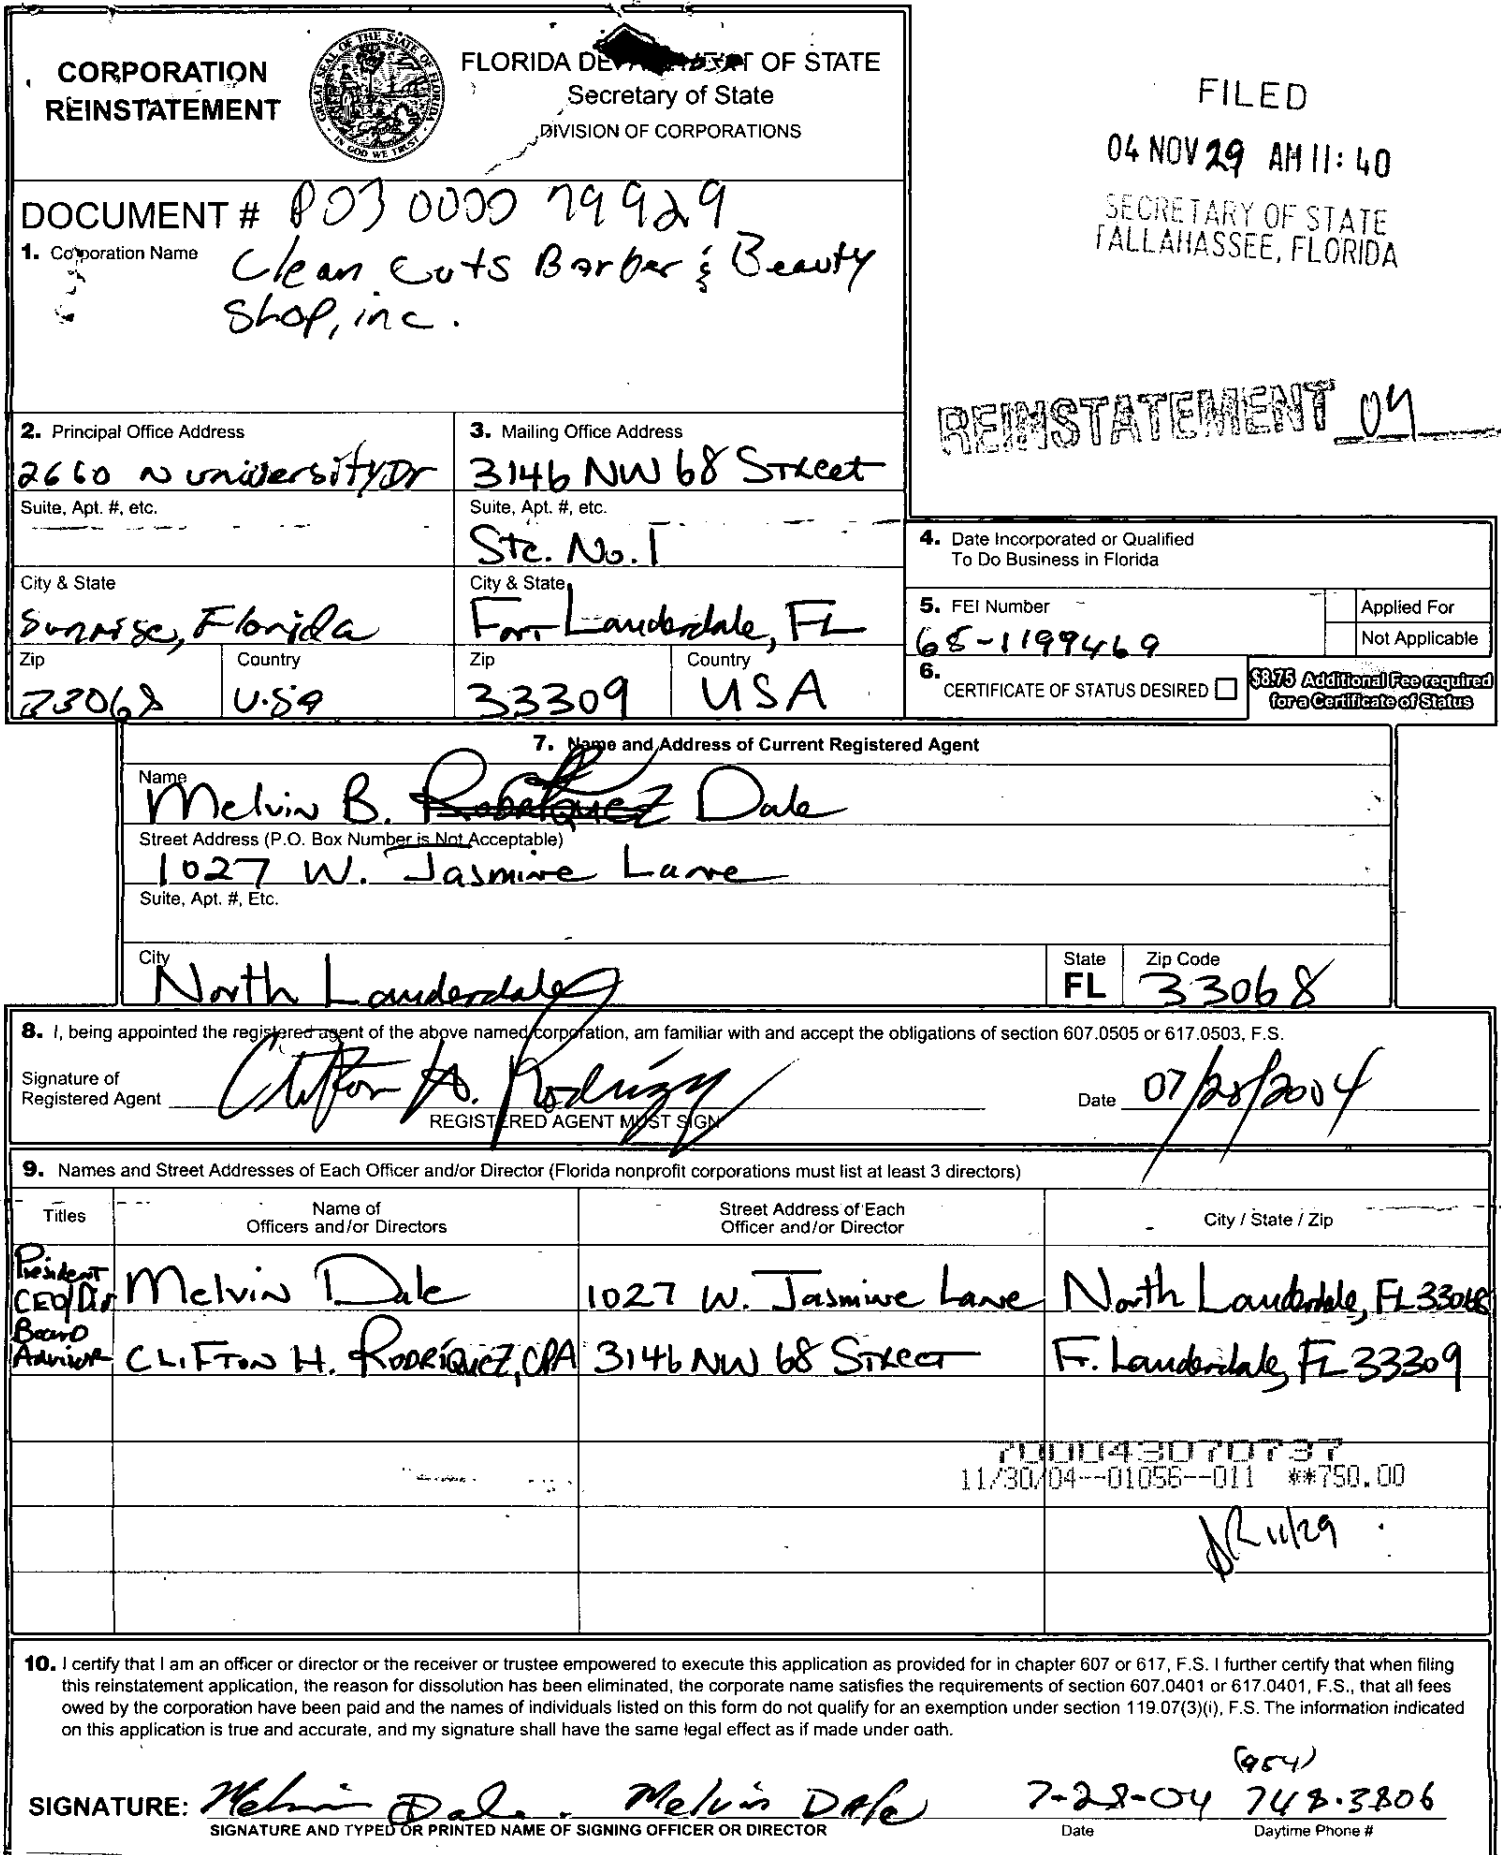 CORPORATION
REINSTATEMENT
GREAT SEAL OF THE STATE OF FLORIDA
IN GOD WE TRUST
FLORIDA DEPARTMENT OF STATE
Secretary of State
DIVISION OF CORPORATIONS
FILED
04 NOV 29 AM 11:40
SECRETARY OF STATE
TALLAHASSEE, FLORIDA
DOCUMENT # P03 0000 79929
1. Corporation Name
Clean Cuts Barber & Beauty
Shop, inc.
REINSTATEMENT 04
2. Principal Office Address
2660 N University Dr
Suite, Apt. #, etc.
City & State
Sunrise, Florida
Zip
33068
Country
U.S.A
3. Mailing Office Address
3146 NW 68 Street
Suite, Apt. #, etc.
Ste. No. 1
City & State
Fort Lauderdale, FL
Zip
33309
Country
USA
4. Date Incorporated or Qualified
To Do Business in Florida
5. FEI Number
68-1199469
Applied For
Not Applicable
6.
CERTIFICATE OF STATUS DESIRED
$8.75 Additional Fee required
for a Certificate of Status
7. Name and Address of Current Registered Agent
Name
Melvin B. Rodriquez Dale
Street Address (P.O. Box Number is Not Acceptable)
1027 W. Jasmine Lane
Suite, Apt. #, Etc.
City
North Lauderdale
State
FL
Zip Code
33068
8. I, being appointed the registered agent of the above named corporation, am familiar with and accept the obligations of section 607.0505 or 617.0503, F.S.
Signature of
Registered Agent
Clifton H. Rodriguez
REGISTERED AGENT MUST SIGN
Date 07/28/2004
9. Names and Street Addresses of Each Officer and/or Director (Florida nonprofit corporations must list at least 3 directors)
Titles
Name of
Officers and/or Directors
Street Address of Each
Officer and/or Director
City / State / Zip
President
CEO/Dir Melvin Dale 1027 W. Jasmine Lane North Lauderdale, FL 33068
Board
Advisor CLIFTON H. RODRIQUEZ, CPA 3146 NW 68 Street F. Lauderdale, FL 33309
700043070737
11/30/04--01056--011 **750.00
11/29
10. I certify that I am an officer or director or the receiver or trustee empowered to execute this application as provided for in chapter 607 or 617, F.S. I further certify that when filing
this reinstatement application, the reason for dissolution has been eliminated, the corporate name satisfies the requirements of section 607.0401 or 617.0401, F.S., that all fees
owed by the corporation have been paid and the names of individuals listed on this form do not qualify for an exemption under section 119.07(3)(i), F.S. The information indicated
on this application is true and accurate, and my signature shall have the same legal effect as if made under oath.
(954)
SIGNATURE: Melvin Dale. Melvin Dale 7-28-04 748-3806
SIGNATURE AND TYPED OR PRINTED NAME OF SIGNING OFFICER OR DIRECTOR
Date
Daytime Phone #